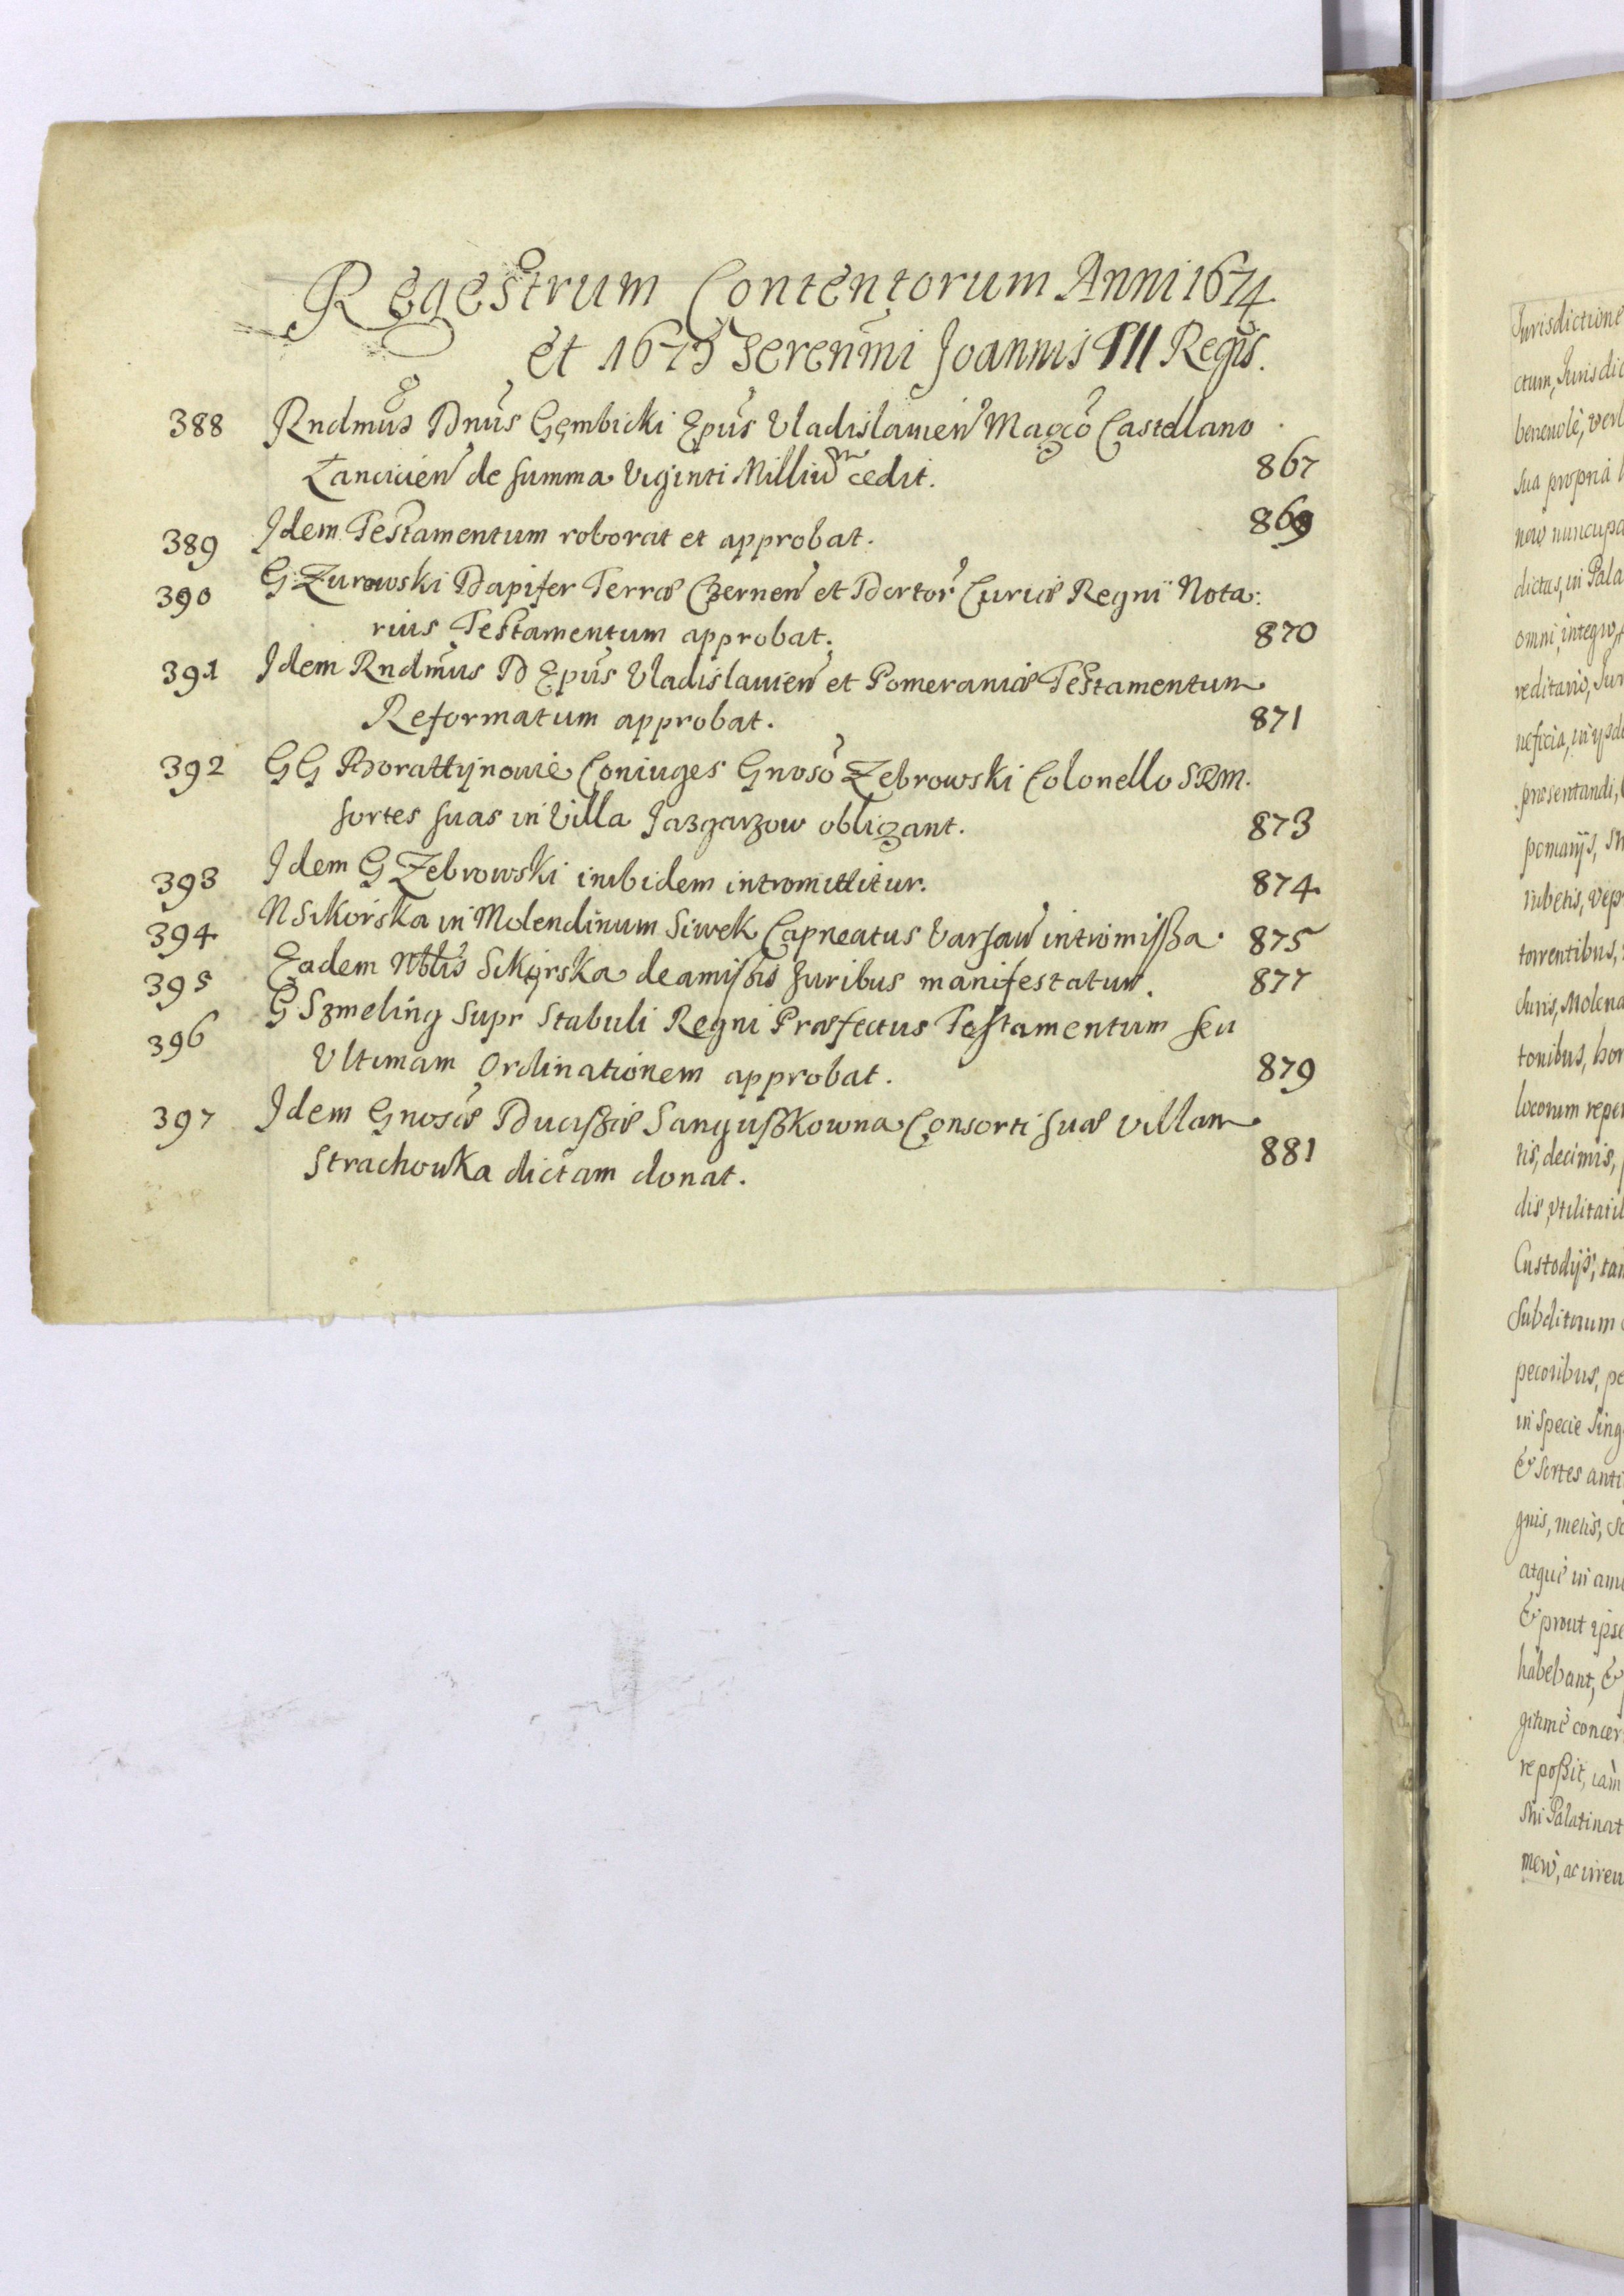 Regestrum Contentorum Anni 1674
et 1675 Serenmi Joannis III Regis.
388 Rndmus Dnus Gembicki Epus Vladislavien Magco Castellano
Lancicien de summa Viginti Milliu cedit. 867
389 Idem Testamentum roborat et approbat. 869
390 G Zurowski Dapifer Terræ Czernen et Decretor Curiæ Regni Nota:
rius Testamentum approbat. 870
391 Idem Rndmus D Epus Vladislavien et Pomeraniæ Testamentum
Reformatum approbat. 871
392 GG Borattÿnowie Coniuges Gnoso Zebrowski Colonello SRM.
sortes suas in Villa Jazgarzow obligant. 873
393 Idem G Zebrowski inibidem intromittitur. 874
394 N Sikorska in Molendinum Siwek Capneatus Varsav intromissa. 875
395 Eadem Nblis Sikorska de amissis Juribus manifestatur. 877
396 G Szmeling Supr Stabuli Regni Præfectus Testamentum seu
Ultimam Ordinationem approbat. 879
397 Idem Gnosæ Ducissæ Sanguszkowna Consorti suæ villam
Strachowka dictam donat. 881
Jurisdictione
ctum, Jurisdic
benevolè, verb
sua propria
dictas, in Pala
omni, integro,
reditario, Jur
neficia, in ijsde
præsentandi,
pomarijs,
torrentibus,
Juris, Molend
tonibus, bor
locorum reper
tis, decimis,
dis, Vtilitatib
Custodijs, tam
Subditorum
pecoribus, pe
in specie Sing
& Sortes anti
gnis, metis,
atque in am
& prout ipse
habebant, &
gitimè concer
re possit, iam
Palatinat